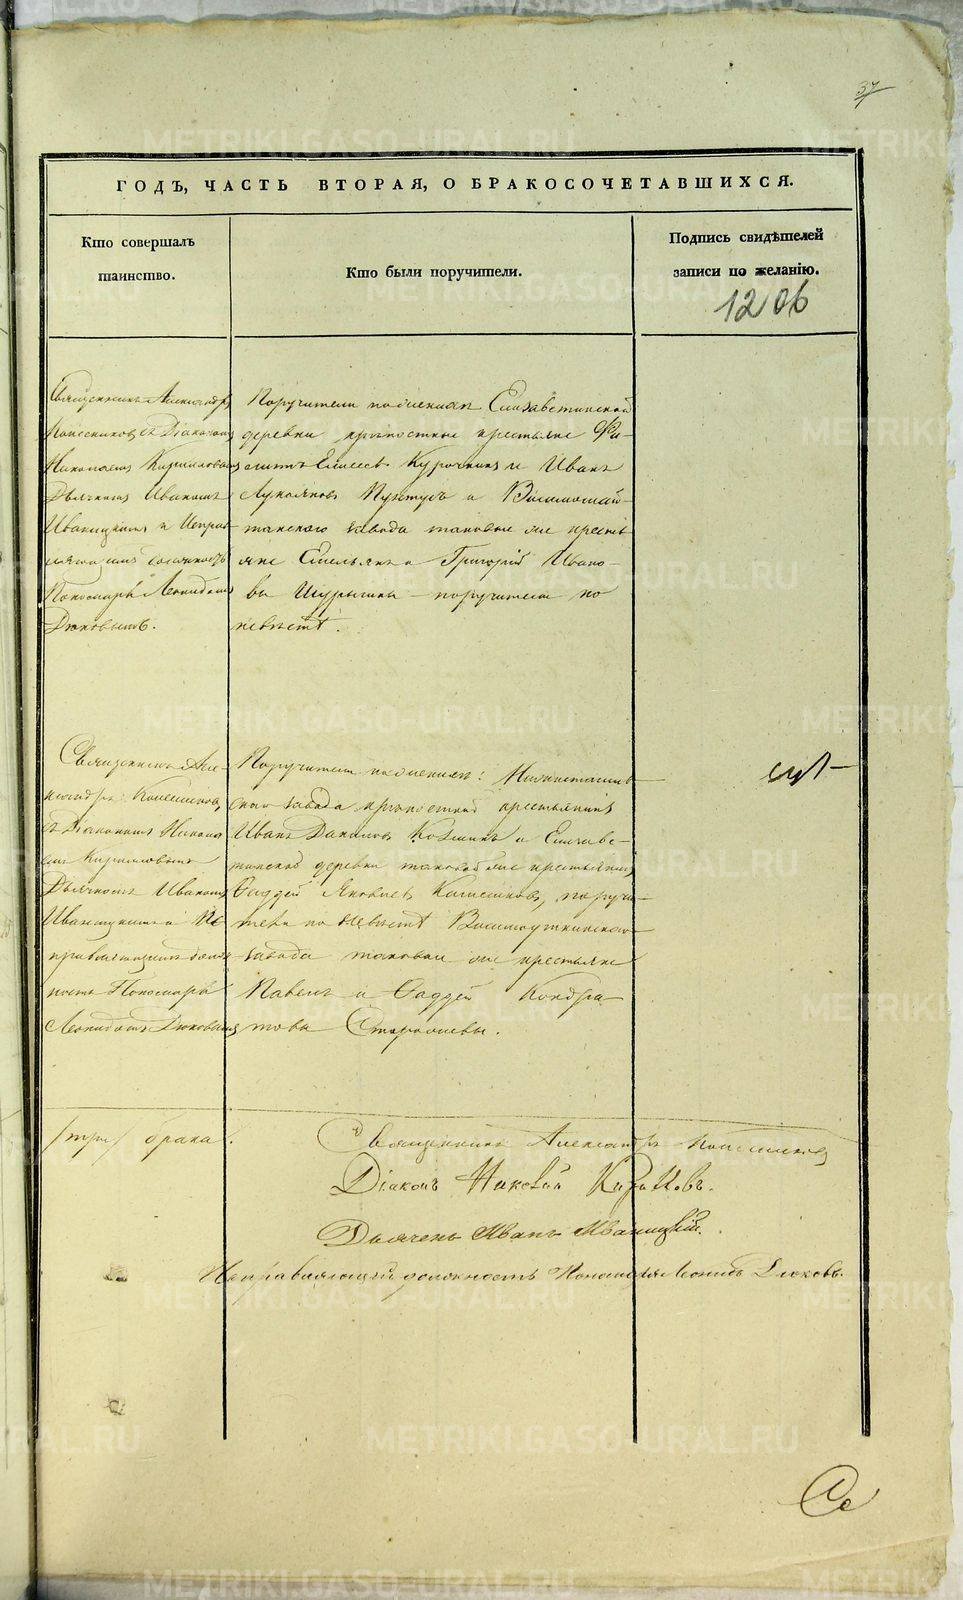 37
ГОДЪ, ЧАСТЬ ВТОРАЯ, О БРАКОСОЧЕТАВШИХСЯ.
Кто совершалъ
таинство.
Кто были поручители.
Подпись свидѣтелей
записи по желанію.
1206
Священникъ Александръ
съ Діакономъ
Николаемъ Кирилловымъ
Дьячкомъ Иваномъ
Иваницкимъ и Исправ
ляющимъ должность
Пономаря Леонидомъ
Дюковымъ.
Поручители по женихѣ Елизаветинской
деревни крѣпостные крестьяне Фи-
липъ Елисеевъ Курочкинъ и Иванъ
Лукояновъ и Висимошай-
танского завода таковые же кресть
яне Емельянъ и Григорій Ивано-
вы Шурыгины – поручители по
невѣстѣ.
Священникъ Але
ксандръ
съ Діакономъ Никола
емъ Кирилловымъ
Дьячкомъ Иваномъ
Иваницкимъ и Ис
правляющимъ долж
ность Пономаря
Леонидомъ Дюковымъ
Поручители по женихѣ: Нижнетагиль
ского завода крѣпостной крестьянинъ
Иванъ Даниловъ и Елизаве-
тинской деревни таковой же крестьянинъ
Фаддей Яковлевъ поручи-
тели по невѣстѣ Висимоуткинского
завода таковые же крестьяне
Павелъ и Фаддей Кондра
товы
/три/ брака.
Священникъ Александръ
Діаконъ Николай Кирилловъ.
Дьячекъ Иванъ Иваницкій.
Исправляющій должность Пономаря Леонидъ Дюковъ.
METRIKI.GASO-URAL.RU